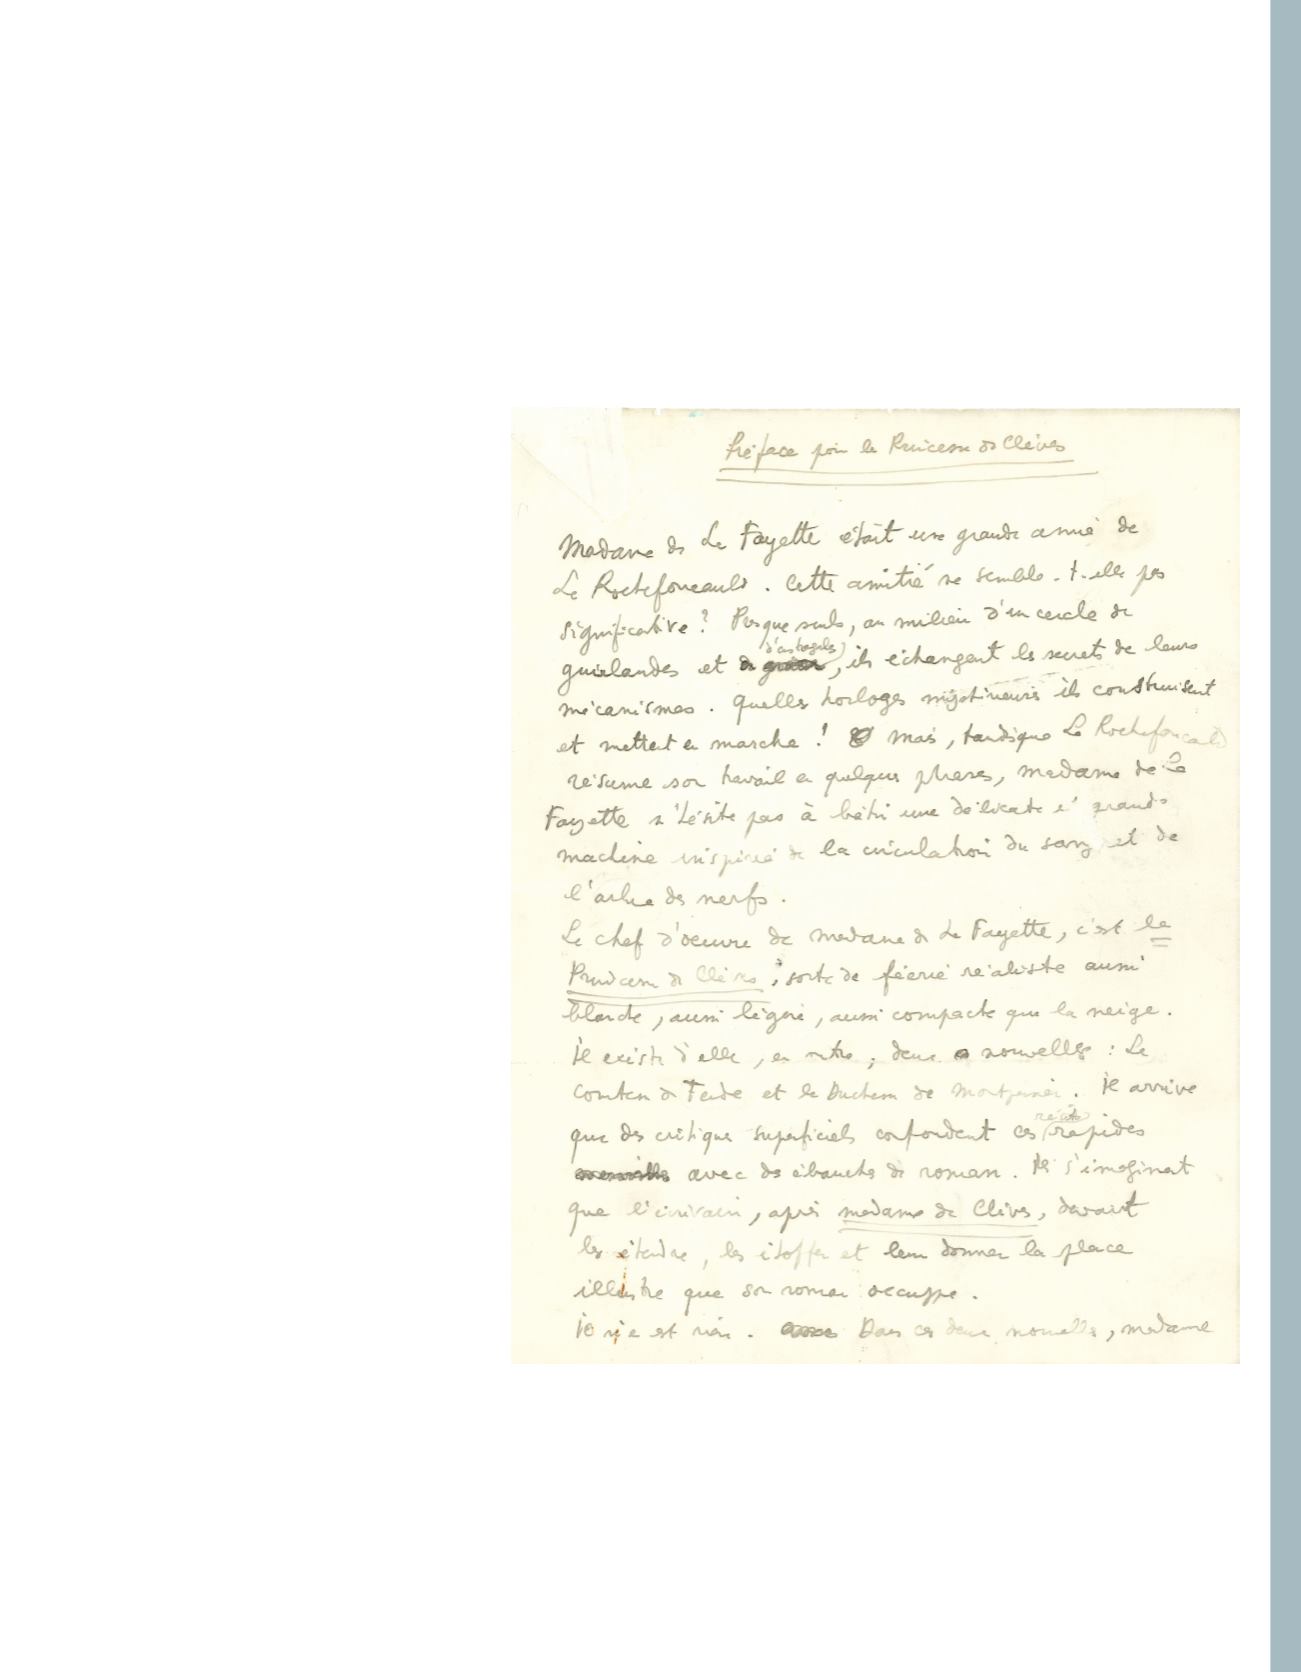 Préface pour la Princesse de Clèves
Madame de La Fayette était une grande amie de
La Rochefoucauld. Cette amitié ne semble-t-elle pas
significative? Presque seuls, au milieu d'un cercle de
d'astragales
guirlandes et, ils échangent les secrets de leurs
mécanismes. Quelles horloges mystérieuses ils construisent
et mettent en marche! Mais, tandisque La Rochefoucauld
résume son travail en quelques phrases, madame de La
Fayette n'hésite pas à bâtir une délicate et grande
machine inspirée de la circulation du sang et de
l'arbre des nerfs.
Le chef d'oeuvre de madame de La Fayette, c'est la
Princesse de Clèves, sorte de féerie réaliste aussi
blanche, aussi légère, aussi compacte que la neige.
Il existe d'elle, en outre, deux nouvelles: La
Comtesse de Tende et la Duchesse de Montpensier. Il arrive
récits
que des critiques superficiels confondent ces rapides
avec des ébauches de roman. Ils s'imaginent
que l'écrivain, après madame de Clèves, devait
les étendre, les étoffer et leur donner la place
illustre que son roman occuppe.
Il n'en est rien. Dans ces deux nouvelles, madame